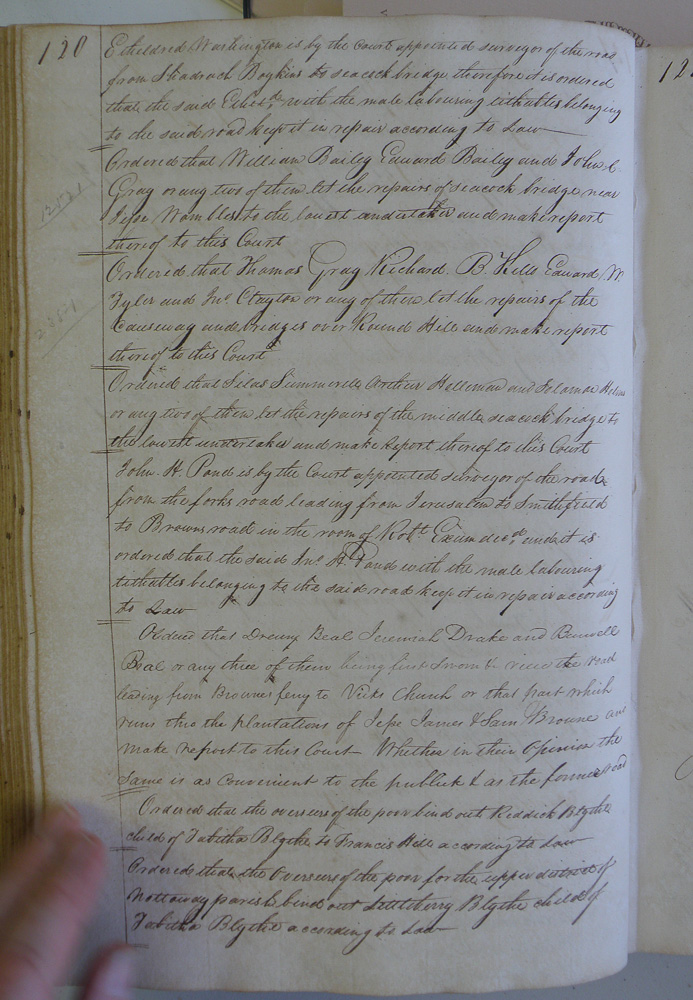 120
Etheldred Washington is by the Court appointed surveyor of the road
from Shadrach Boykins to seacock bridge, therefore it is ordered
that the said Etheld. with the male labouring tithables belonging
to the said road keep it in repair according to Law
Ordered that William Bailey Edward Bailey and John C
Gray or any two of them let the repairs of seacock bridge near
Jesse Wombles to the lowest undertaker and make report
thereof to this Court
Ordered that Thomas Gray Richard. B. Kello Edward W.
Tyler and Jno. Clayton or any of them let the repairs of the
Causeway and bridges over Round Hill and make report
thereof to this Court
Ordered that Silas Summerell Arthur Holleman and Solomon
or any two of them let the repairs of the middle seacock bridge to
the lowest undertaker and make report thereof to this Court
John. H. Pond is by the Court appointed surveyor of the road
from the forks road leading from Jerusalem to Smithfield
to Browns road in the room of Robt. Exum decd. and it is
ordered that the said Jno. H. Pond with the male labouring
tithables belonging to the said road keep it in repair according
to Law
Ordered that Drewry Beal Jeremiah Drake and Burwell
Beal or any three of them being first sworn to view the road
leading from Brownes ferry to Vicks Church or that part which
runs thro the plantations of Jesse James & Sam Browne and
make report to this Court Whether in their Opinion the
same is as Convenient to the publick & as the former road
Ordered that the overseers of the poor bind out Reddick Blythe
child of Tabitha Blythe to Francis Hill according to Law
Ordered that the Overseers of the poor for the upper district of
Nottoway parish bind out Littleberry Blythe child of
Tabitha Blythe according to Law